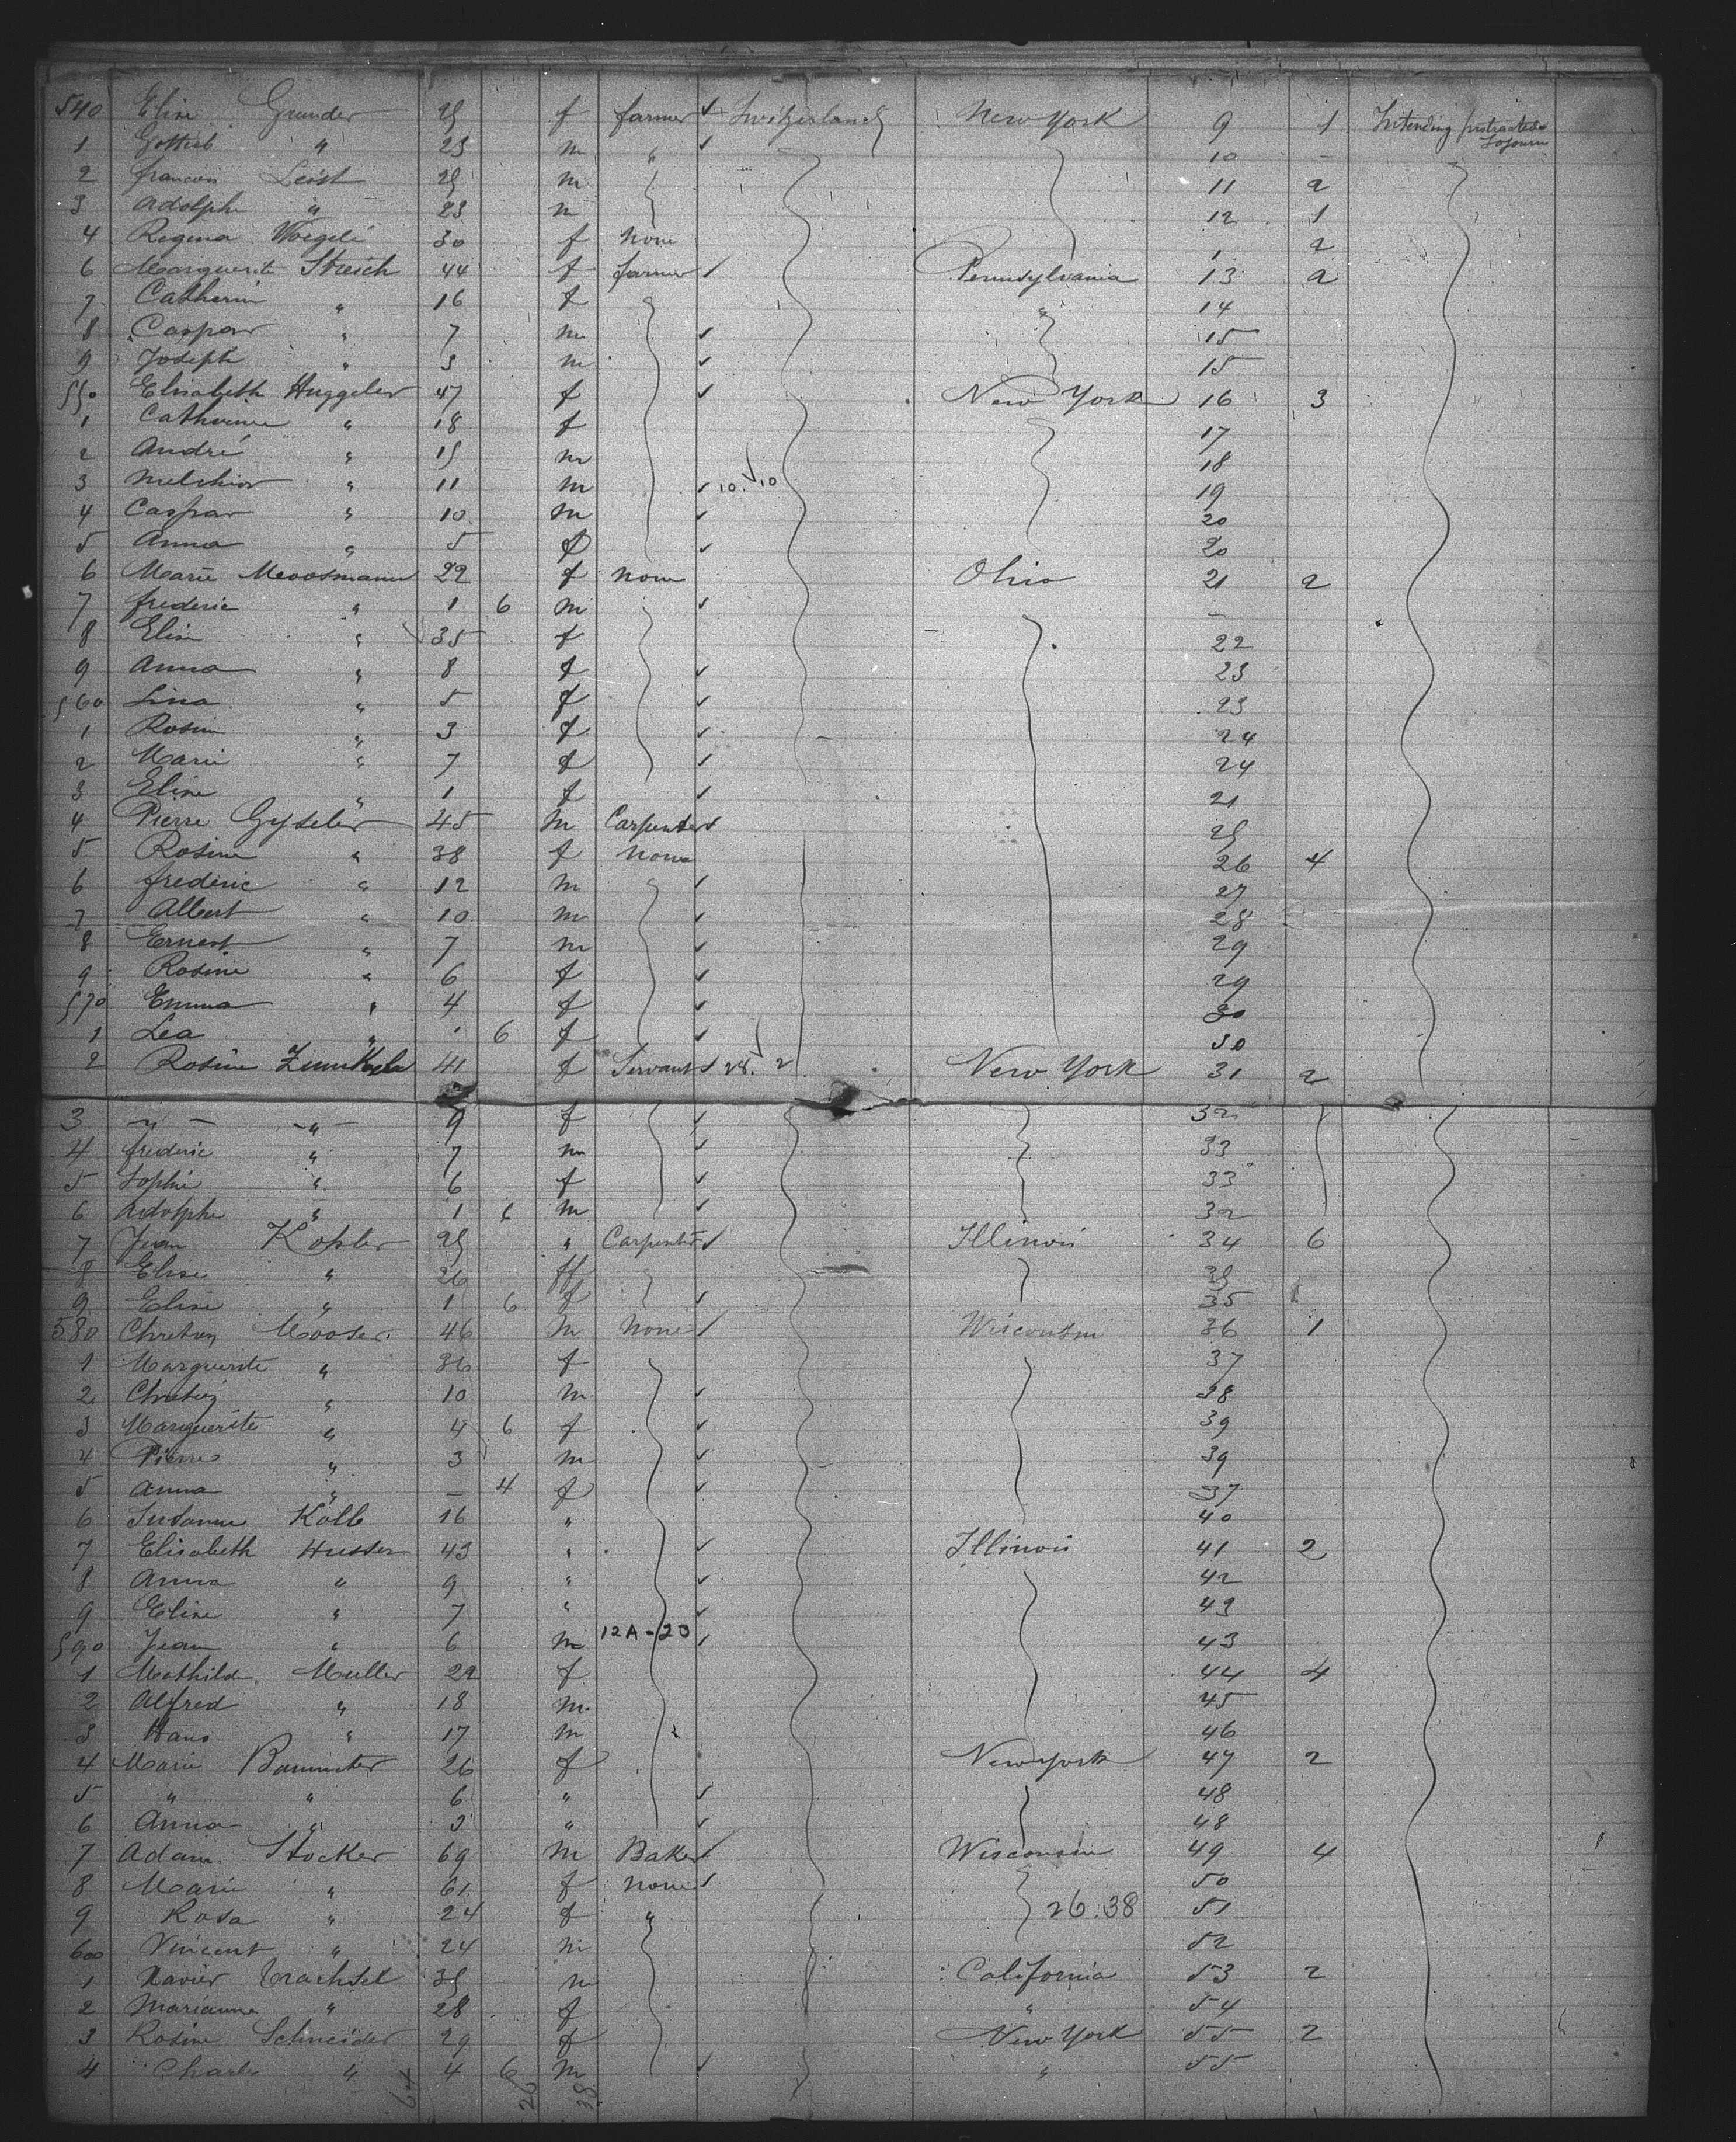 540 Elise Grunder 25 f farmer Switzerland New York 9 1 Intending protracted sojourn
1 Gottlieb " 23 m " 10 -
2 francois Leist 25 m 11 2
3 Adolphe " 23 m 12 1
4 Regina Woegeli 30 f None 1 2
6 Marguerite Streich 44 f farmer Pennsylvania 13 2
7 Catherin " 16 f " 14
8 Caspar " 7 m 15
9 Joseph " 3 m 15
550 Elisabeth Huggeler 47 f New York 16 3
1 Catherine " 18 f 17
2 André " 15 m 18
3 Melchior " 11 m 10. 10 19
4 Caspar " 10 m 20
5 Anna " 5 f 20
6 Marie Moosmann 22 f None Ohio 21 2
7 frederic " 1 6 m -
8 Elise " 35 f 22
9 Anna " 8 f 23
560 Lina " 5 f 23
1 Rosine " 3 f 24
2 Marie " 7 f 24
3 Elise " 1 f 21
4 Pierre Gyseler 45 m Carpenter 25
5 Rosine " 38 f None 26 4
6 frederic " 12 m 27
7 Albert " 10 m 28
8 Ernest " 7 m 29
9 Rosine " 6 f 29
570 Emma " 4 f 30
1 Lea " 6 f 30
2 Rosine 41 f Servant 28. 2 New York 31 2
3 - " - - " - 9 f 32
4 frederic " 7 m 33
5 Sophie " 6 f 33
6 Adolphe " 1 6 m 32
7 Jean Kohler 25 " Carpenter Illinois 34 6
8 Elise " 26 f 35
9 Elise " 1 6 f 35
580 Chretien Mooser 46 m None Wisconsin 36 1
1 Marguerite " 36 f 37
2 Chretien " 10 m 38
3 Marguerite " 4 6 f 39
4 Pierre " 3 m 39
5 Anna " - 4 f 37
6 Susanne Kolb 16 " 40
7 Elisabeth Husser 43 " Illinois 41 2
8 Anna " 9 " 42
9 Elise " 7 " 43
590 Jean " 6 m 12A-23 43
1 Mathilde Muller 22 f 44 4
2 Alfred " 18 m 45
3 Hans " 17 m 46
4 Marie 26 f New York 47 2
5 " " 6 " 48
6 Anna " 3 " 48
7 Adam Stocker 69 m Baker Wisconsin 49 4
8 Marie " 61 f None 50
9 Rosa " 24 f " 26.38 51
600 Vincent " 24 m 52
1 Xavier Trachsel 35 m California 53 2
2 Marianne " 28 f " 54
3 Rosine Schneider 29 f New York 55 2
4 Charles " 4 6 m " 55
64 26 38